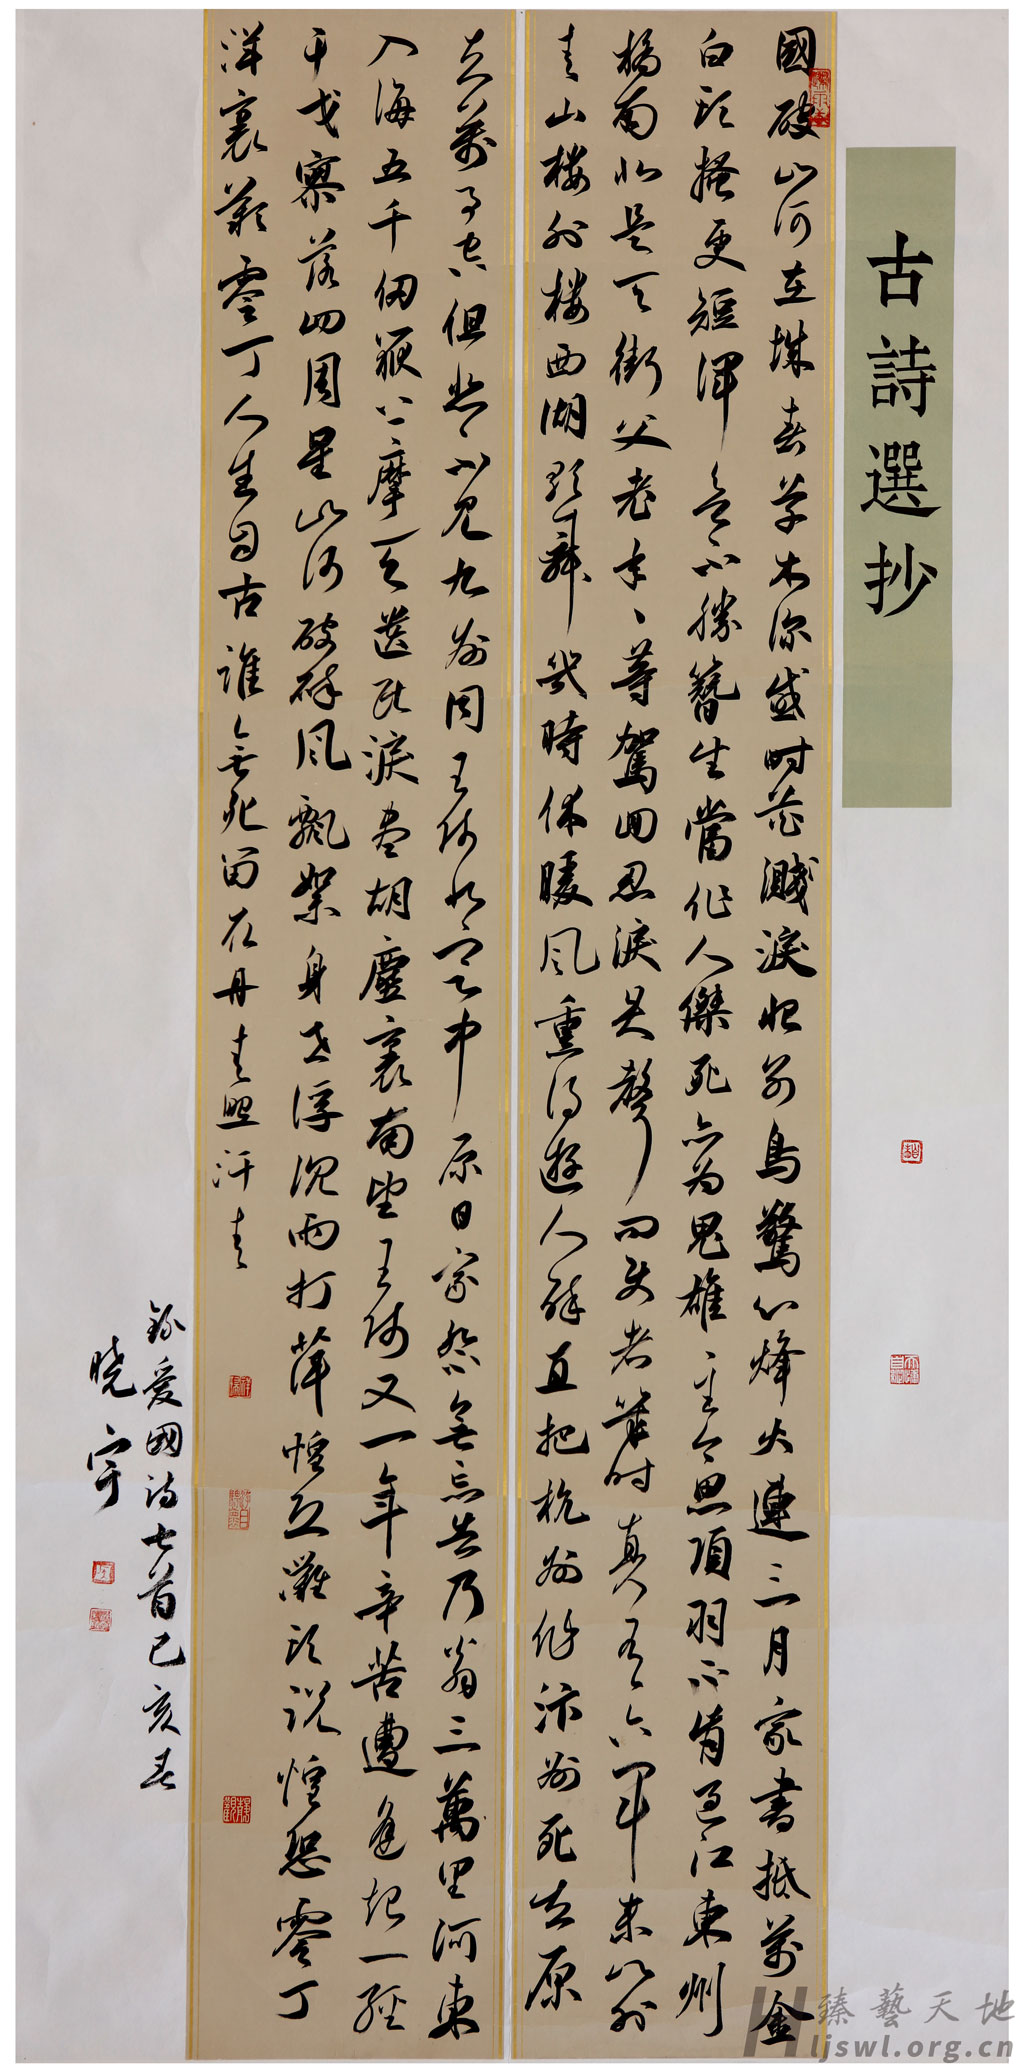 古詩選抄
國破山河在城春草木深感時花濺淚恨別鳥驚心烽火連三月家書抵萬金
白頭搔更短渾欲不勝簪生當作人傑死亦為鬼雄至今思項羽不肯過江東州
橋南北是天街父老年々等駕回忍淚失聲問使者幾時真有六軍來山外
青山樓外樓西湖歌舞幾時休暖風熏得遊人醉直把杭州作汴州死去原
知萬事空但悲不見九州同王師北定中原日家祭無忘告乃翁三萬里河東
入海五千仞嶽上摩天遺民淚盡胡塵裏南望王師又一年辛苦遭逢起一經
干戈寥落四周星山河破碎風飄絮身世浮沉雨打萍惶恐灘頭說惶恐零丁
洋裏嘆零丁人生自古誰無死留取丹青照汗青
錄愛國詩七首己亥春
曉宇
臻藝天地
ljswl.org.cn